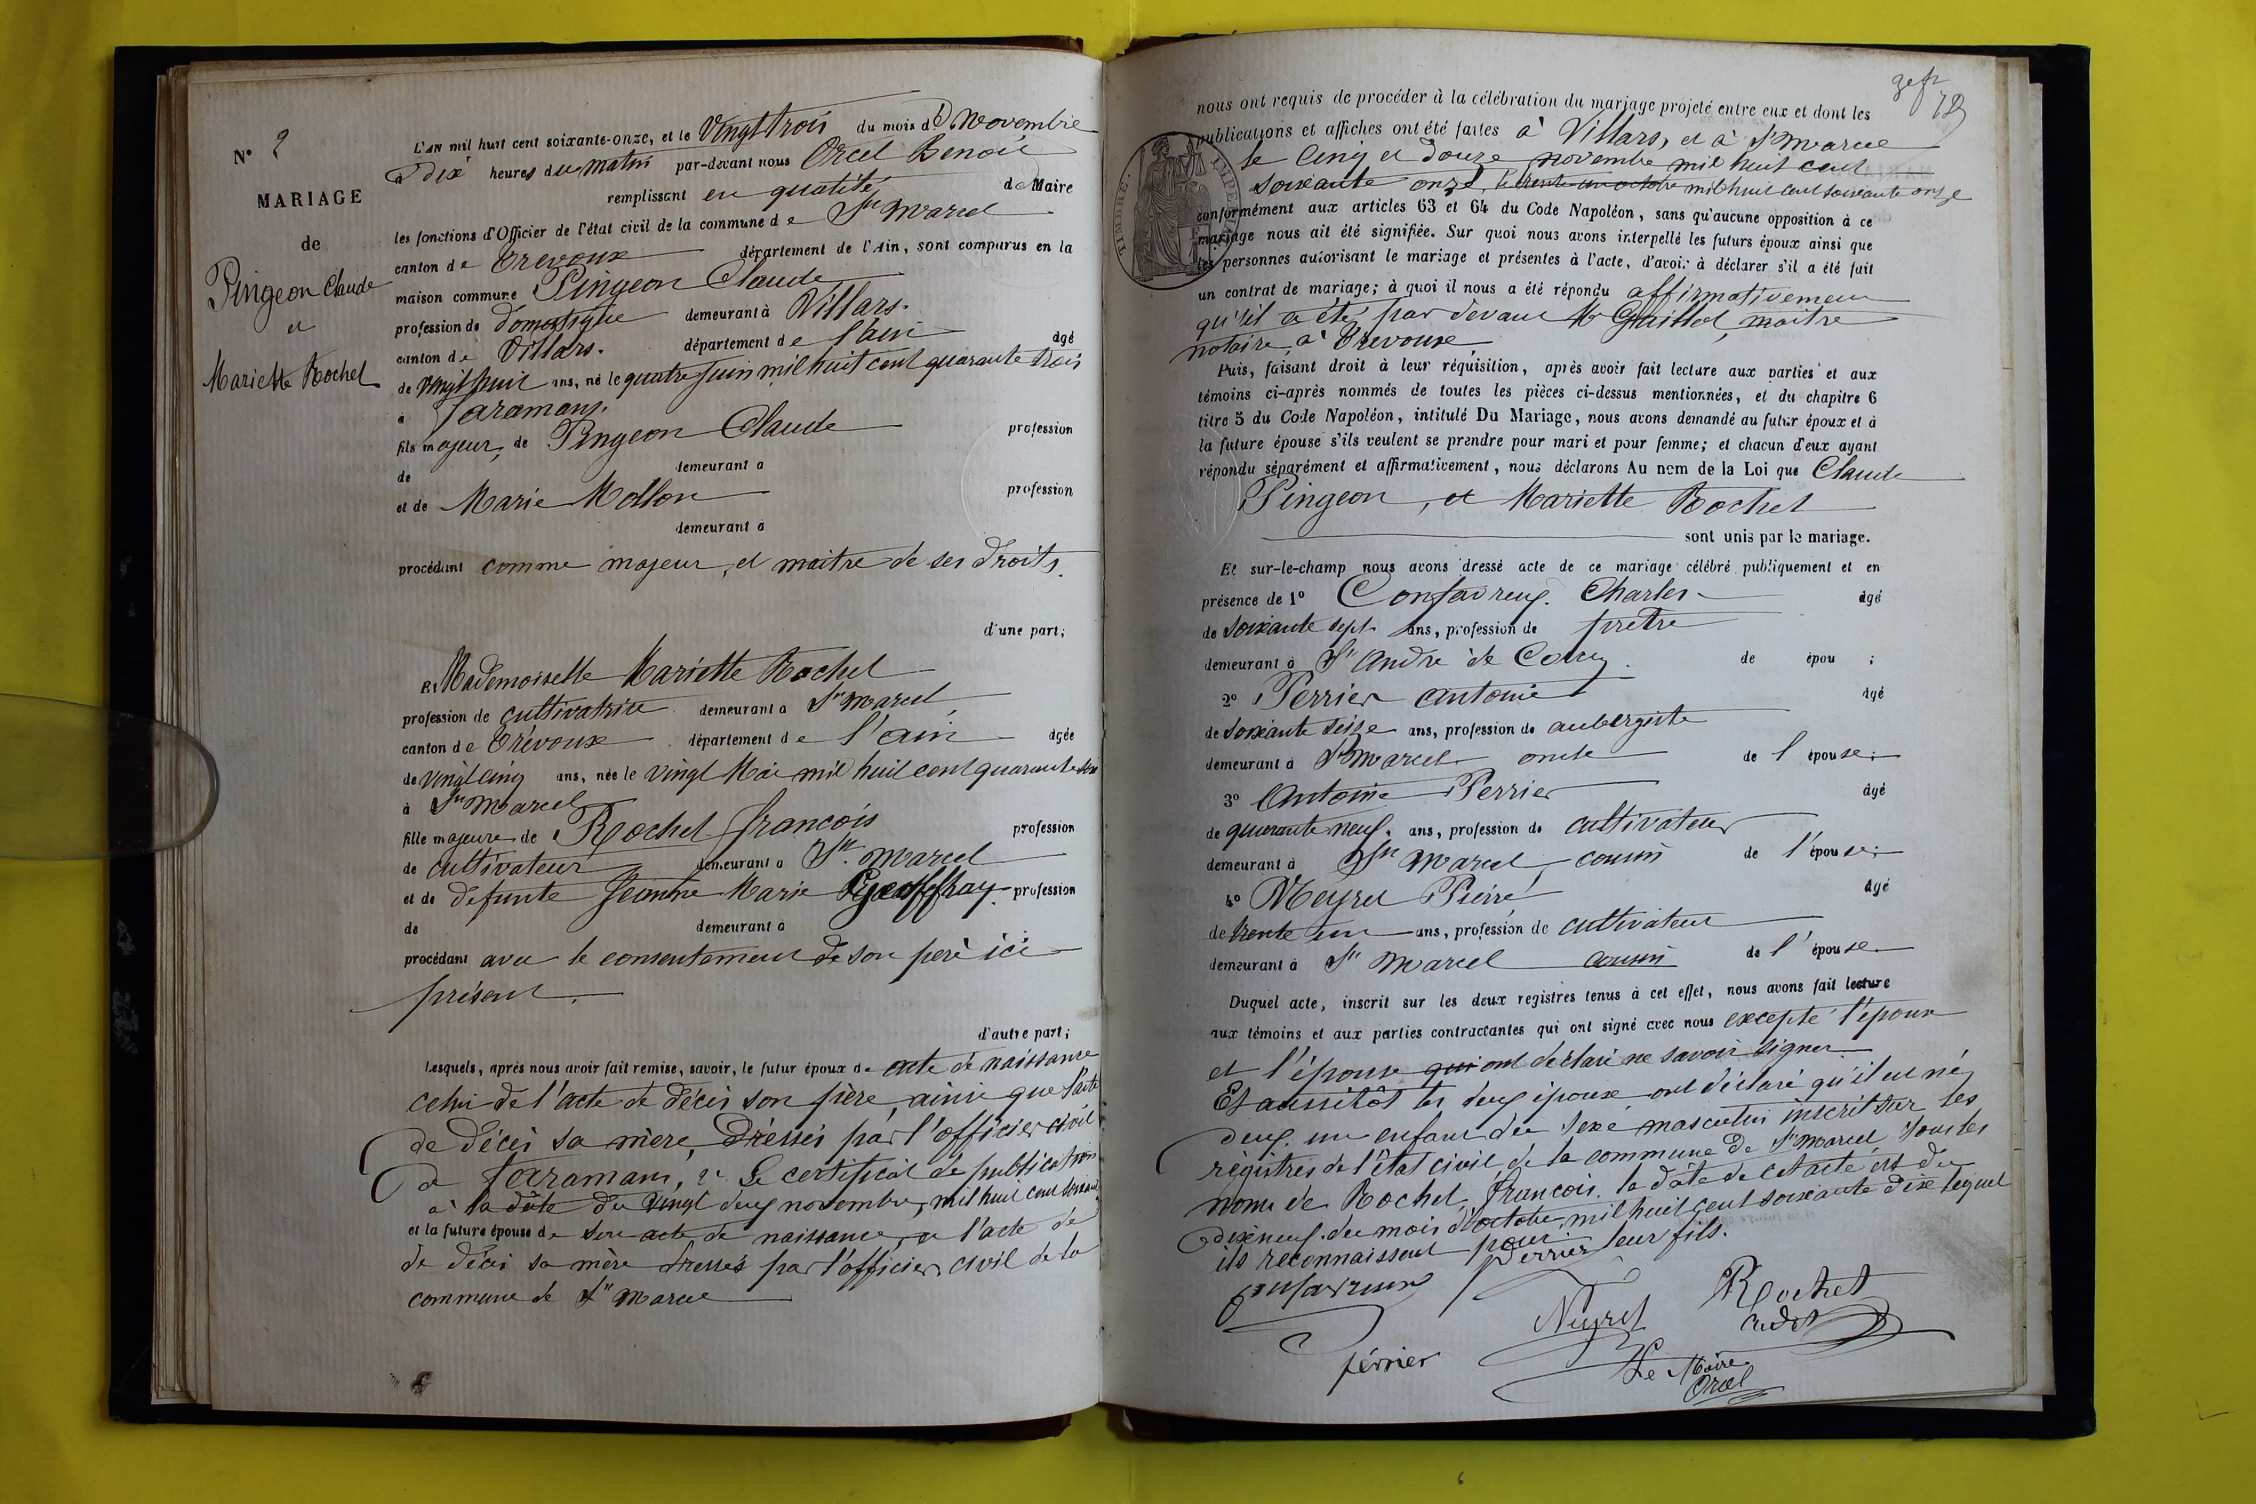 N° 2
MARIAGE
de
Pingeon Claude
et
Mariette Rochet
L'AN mil huit cent soixante-onze, et le Vingt trois du mois de Novembre
à dix heures du matin par-devant nous Orcel Benoit
remplissant en qualité de Maire
les fonctions d'Officier de l'état civil de la commune de St Marcel
canton de Trevoux département de l'Ain, sont comparus en la
maison commune Pingeon Claude
profession de domestique demeurant à Villars.
canton de Villars. département de l'ain âgé
de vingt huit ans, né le quatre juin mil huit cent quarante trois
à Faramans.
fils majeur, de Pingeon Claude profession
de demeurant à
et de Marie Mollon profession
demeurant à
procédant comme majeur, et maitre de ses droits.
d'une part;
Et Mademoiselle Mariette Rochet
profession de cultivatrice demeurant à St Marcel,
canton de Trévoux département de l'ain âgée
de vingt cinq ans, née le vingt Mai mil huit cent quarante six
à St Marcel
fille majeure de Rochet françois profession
de cultivateur demeurant à St. Marcel
et de defunte Jeanne Marie Geoffray profession
de demeurant à
procédant avec le consentement de son père ici
présent.
d'autre part;
Lesquels, après nous avoir fait remise, savoir, le futur époux de acte de naissance
celui de l'acte de décès son père, ainsi que l'acte
de décès sa mère, dressés par l'officier civil
à faramans, Le certificat de publication
à la date du vingt deux novembre, mil huit cent soixante
et la future épouse de son acte de naissance, a l'acte de
de décès sa mère dressés par l'officier civil de la
commune de St Marcel
78
nous ont requis de procéder à la célébration du mariage projeté entre eux et dont les
publications et affiches ont été faites à Villars, et à St Marcel
le Cinq et douze novembre mil huit cent
soixante onze, le trente un octobre mil huit cent soixante onze
TIMBRE. IMPERIAL
conformément aux articles 63 et 64 du Code Napoléon, sans qu'aucune opposition à ce
mariage nous ait été signifiée. Sur quoi nous avons interpellé les futurs époux ainsi que
les personnes autorisant le mariage et présentes à l'acte, d'avoir à déclarer s'il a été fait
un contrat de mariage; à quoi il nous a été répondu affirmativement
qu'il a été par devant Me Guillot, maitre
notaire, à Trevoux
Puis, faisant droit à leur réquisition, après avoir fait lecture aux parties et aux
témoins ci-après nommés de toutes les pièces ci-dessus mentionnées, et du chapitre 6
titre 5 du Code Napoléon, intitulé Du Mariage, nous avons demandé au futur époux et à
la future épouse s'ils veulent se prendre pour mari et pour femme; et chacun d'eux ayant
répondu séparément et affirmativement, nous déclarons Au nom de la Loi que Claude
Pingeon, et Mariette Rochet
sont unis par le mariage.
Et sur-le-champ nous avons dressé acte de ce mariage célébré publiquement et en
présence de 1° Confavreux. Charles âgé
de soixante sept ans, profession de prêtre
demeurant à St André de Corcy. de épou ;
2° Perrier Antoine âgé
de soixante seize ans, profession de aubergiste
demeurant à St Marcel oncle de l'épouse;
3° Antoine Perrier âgé
de quarante neuf. ans, profession de cultivateur
demeurant à St Marcel, cousin de l'épouse;
4° Neyret Pierre âgé
de trente un ans, profession de cultivateur
demeurant à St Marcel cousin de l'épouse.
Duquel acte, inscrit sur les deux registres tenus à cet effet, nous avons fait lecture
aux témoins et aux parties contractantes qui ont signé avec nous excepté l'époux
et l'épouse qui ont déclaré ne savoir signer.
Et aussitôt les deux époux ont déclaré qu'il est né
deux. un enfant du sexe masculin inscrit sur les
régistres de l'état civil de la commune de St Marcel sous les
noms de Rochet, françois. la date de cet acte est du
dix neuf. du mois d'octobre, mil huit cent soixante dix lequel
ils reconnaissent pour leur fils.
Confavreux Perrier
Neyret Rochet
cadet
ferrier
Le Maire
Orcel